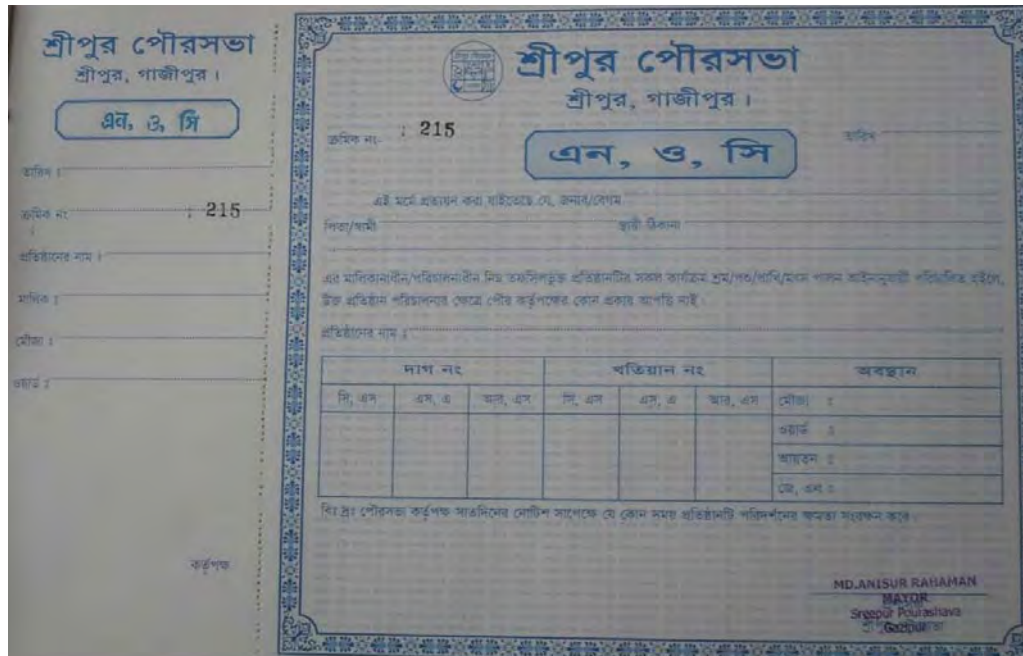 শ্রীপুর পৌরসভা
শ্রীপুর, গাজীপুর।
এন, ও, সি
তারিখ :
ক্রমিক নং : 215
প্রতিষ্ঠানের নাম :
মালিক :
মৌজা :
ওয়ার্ড :
কর্তৃপক্ষ
শ্রীপুর পৌরসভা
শ্রীপুর, গাজীপুর।
ক্রমিক নং- : 215
তারিখ
এন, ও, সি
এই মর্মে প্রত্যয়ন করা যাইতেছে যে, জনাব/বেগম
পিতা/স্বামী স্থায়ী ঠিকানা
এর মালিকানাধীন/পরিচালনাধীন নিম্ন তফসিলভুক্ত প্রতিষ্ঠানটির সকল কার্যক্রম শ্রম/পশু/পাখি/মৎস্য পালন আইনানুযায়ী পরিচালিত হইলে,
উক্ত প্রতিষ্ঠান পরিচালনার ক্ষেত্রে পৌর কর্তৃপক্ষের কোন প্রকার আপত্তি নাই।
প্রতিষ্ঠানের নাম :
দাগ নং খতিয়ান নং অবস্থান
সি, এস এস, এ আর, এস সি, এস এস, এ আর, এস মৌজা :
ওয়ার্ড :
আয়তন :
জে, এল :
বিঃ দ্রঃ পৌরসভা কর্তৃপক্ষ সাতদিনের নোটিশ সাপেক্ষে যে কোন সময় প্রতিষ্ঠানটি পরিদর্শনের ক্ষমতা সংরক্ষন করে।
MD.ANISUR RAHAMAN
MAYOR
Sreepur Pourashava
Gazipur